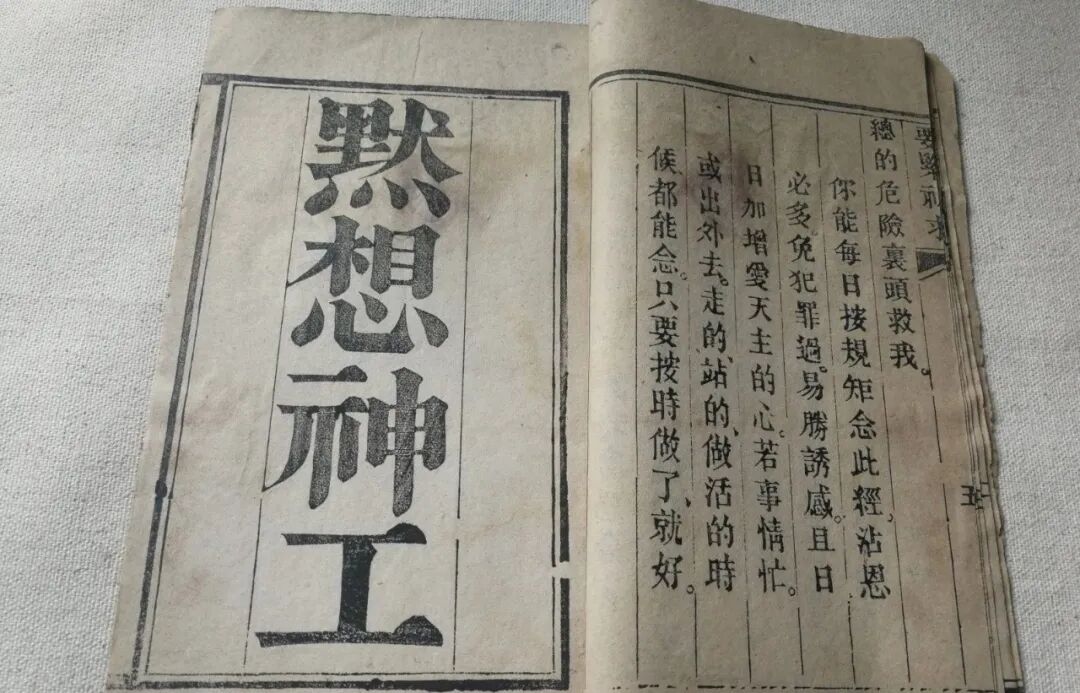 要緊祈求
總的危險裏頭救我。
你能每日按規矩念此經、沾恩
必多免犯罪過。易勝誘感。且日
日加增愛天主的心。若事情忙。
或出外去。走的、站的、做活的時
候都能念。只要按時做了、就好。
黙想神工